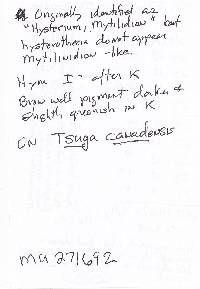 Originally identified as
"Hysterium, Mytilidion" but
hysterothecia do not appear
Mytilinidion-like.
Hym I- after K
Brown wall pigment darker +
slightly greenish in K
on Tsuga canadensis
MA 271692